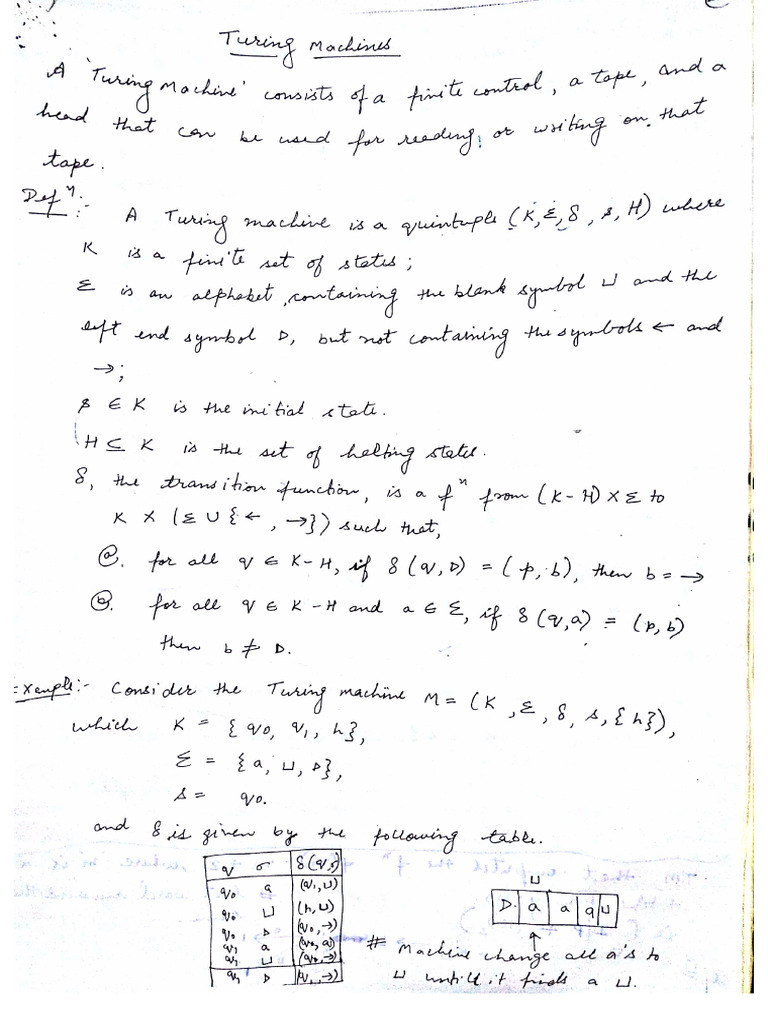 Turing Machines
A 'Turing Machine' consists of a finite control, a tape, and a
head that can be used for reading or writing on that
tape.
Defⁿ:-
A Turing machine is a quintuple (K, Σ, δ, s, H) where
K is a finite set of states;
Σ is an alphabet, containing the blank symbol ⊔ and the
left end symbol ▷, but not containing the symbols ← and
→;
s ∈ K is the initial state.
H ⊆ K is the set of halting states.
δ, the transition function, is a fⁿ from (K-H) × Σ to
K × (Σ ∪ {←, →}) such that,
(a). for all q ∈ K-H, if δ(q, ▷) = (p, b), then b = →
(b). for all q ∈ K-H and a ∈ Σ, if δ(q, a) = (p, b)
then b ≠ ▷.
Example:- Consider the Turing machine M = (K, Σ, δ, s, {h}),
which K = {q0, q1, h},
Σ = {a, ⊔, ▷},
s = q0.
and δ is given by the following table.
q σ δ(q,σ)
q0 a (q1, ⊔)
q0 ⊔ (h, ⊔)
q0 ▷ (q0, →)
q1 a (q0, a)
q1 ⊔ (q0, →)
q1 ▷ (q1, →)
⊔
▷ a a a ⊔
# Machine change all a's to
⊔ untill it finds a ⊔.